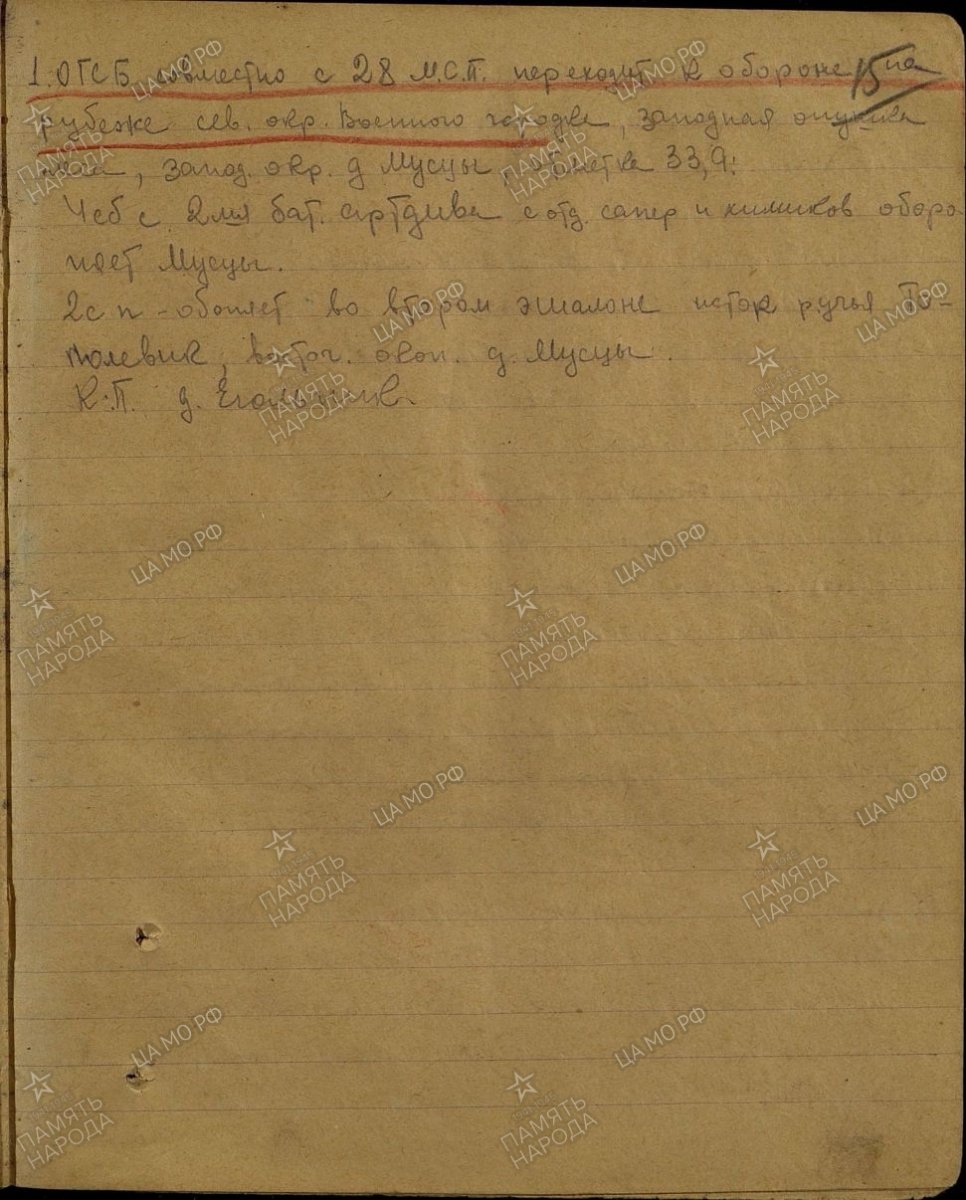 15
1. ОГСБ совместно с 28 м.с.п. переходит к обороне на
рубеже сев. окр. Военного городка, западная опушка
леса, запад. окр. д Мусцы, отметка 33,9.
4 сб с 2мя бат. артдива с отд. сапер и химиков оборо
няет Мусцы.
2 с п - обоняет во втором эшалоне исток ручья То-
полевик, восточ. окол. д. Мусцы.
К.П. д.
ЦА МО РФ
ПАМЯТЬ НАРОДА